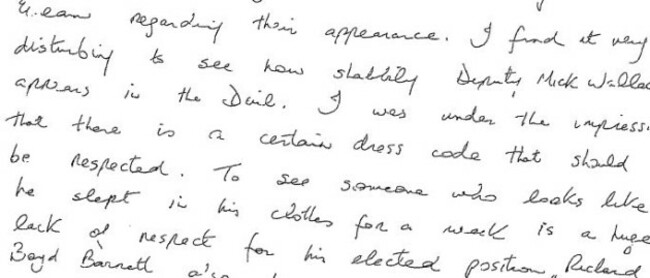 regarding their appearance. I find it very
disturbing to see how shabbily Deputy Mick Wallac
appears in the Dail. I was under the impressi
that there is a certain dress code that should
be respected. To see someone who looks like
he slept in his clothes for a week is a huge
lack of respect for his elected position, Richard
Boyd Barrett also